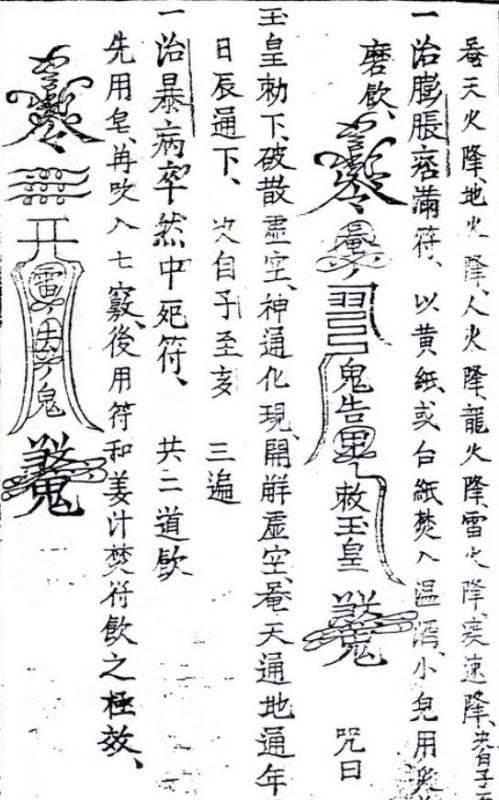 菴天火降、地火降、人火降、龍火降、雪火降、衮速降、夬自子
一治膨脹痞滿符、以黄紙或台紙焚入温酒、小兒用
磨飲、
鬼告 敕玉皇 咒曰
玉皇勅下、破散虛空、神通化現、開解虛空、菴天通地通年
日辰通下、夬自子至亥 三遍
一治暴病卒然中死符、 共二道飲
先用皂、再吹入七竅、後用符和姜汁焚符飲之極效、
雷 鬼